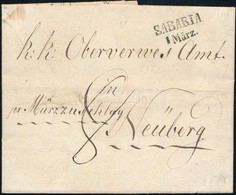 SABARIA
1 März.
k:k: Oberverwes Amt.
in
pr Mürzzuschlag
Neüberg